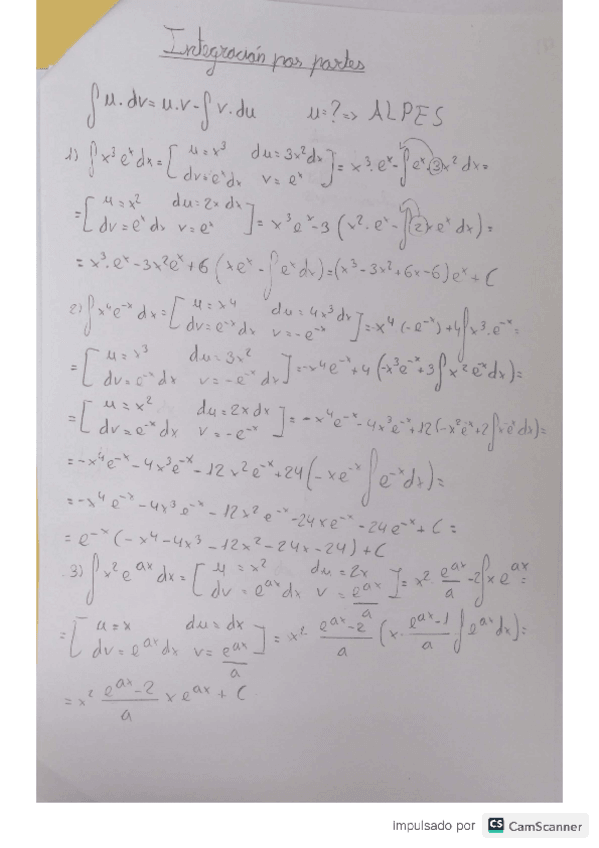 Integración por partes
∫u.dv=u.v-∫v.du u=?=> ALPES
1) ∫x³eˣdx=[u=x³ du=3x²dx dv=eˣdx v=eˣ]=x³.eˣ-∫eˣ.3x²dx=
=[u=x² du=2x dx dv=eˣdx v=eˣ]=x³eˣ-3(x².eˣ-∫2xeˣdx)=
=x³.eˣ-3x²eˣ+6(xeˣ-∫eˣdx)=(x³-3x²+6x-6)eˣ+C
2) ∫x⁴e⁻ˣdx=[u=x⁴ du=4x³dx dv=e⁻ˣdx v=-e⁻ˣ]=-x⁴(-e⁻ˣ)+4∫x³.e⁻ˣ=
=[u=x³ du=3x² dv=e⁻ˣdx v=-e⁻ˣdx]=-x⁴e⁻ˣ+4(-x³e⁻ˣ+3∫x²e⁻ˣdx)=
=[u=x² du=2x dx dv=e⁻ˣdx v=-e⁻ˣ]=-x⁴e⁻ˣ-4x³e⁻ˣ+12(-x²e⁻ˣ+2∫xe⁻ˣdx)=
=-x⁴e⁻ˣ-4x³e⁻ˣ-12x²e⁻ˣ+24(-xe⁻ˣ∫e⁻ˣdx)=
=-x⁴e⁻ˣ-4x³e⁻ˣ-12x²e⁻ˣ-24xe⁻ˣ-24e⁻ˣ+C=
=e⁻ˣ(-x⁴-4x³-12x²-24x-24)+C
3) ∫x²eᵃˣdx=[u=x² du=2x dv=eᵃˣdx v=eᵃˣ/a]=x².eᵃˣ/a-2∫xeᵃˣ=
=[u=x du=dx dv=eᵃˣdx v=eᵃˣ/a]=x².(eᵃˣ-2)/a(x.(eᵃˣ-1)/a∫eᵃˣdx)=
=x²(eᵃˣ-2)/a xeᵃˣ+C
Impulsado por CS CamScanner